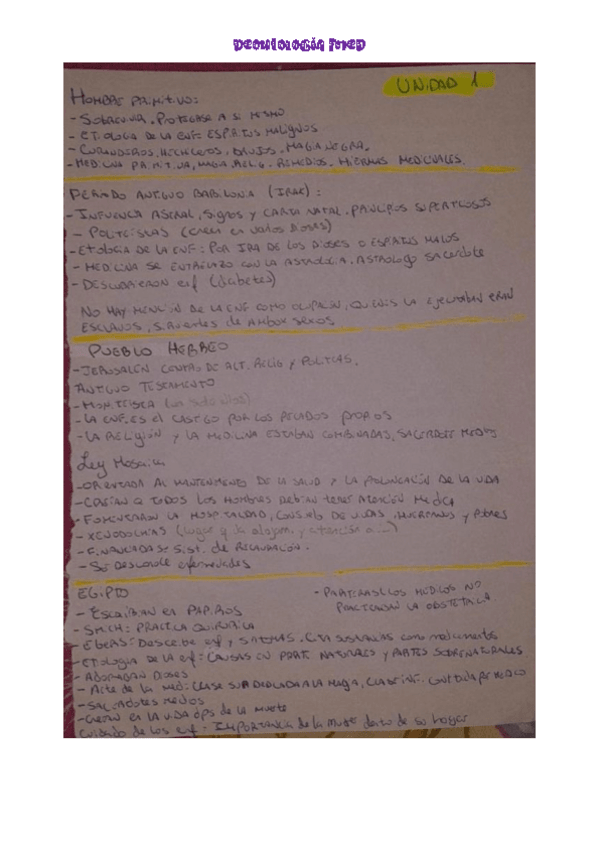 Deontología Med
UNIDAD 1
HOMBRE PRIMITIVO:
- SOBREVIVIR. Protegerse A SI MISMO
- ETIOLOGIA DE LA ENF: ESPIRITUS MALIGNOS
- CURANDEROS, HECHICEROS, BRUJOS. MAGIA NEGRA.
- MEDICINA PRIMITIVA, MAGIA, RELIG. REMEDIOS. HIERVAS MEDICINALES.
PERIODO ANTIGUO BABILONIA (IRAK):
- INFLUENCIA ASTRAL, Signos Y CARTA NATAL. PRINCIPIOS SUPERTICIOSOS
- POLITEISTAS (creen en varios Dioses)
- ETIOLOGIA DE LA ENF: POR IRA DE LOS DIOSES O ESPIRITUS MALOS
- MEDICINA SE ENTRELAZO CON LA ASTROLOGIA. ASTROLOGO SACERDOTE
- DESCUBRIERON enf (diabetes)
NO HAY MENCION DE LA ENF COMO OCUPACION, QUIENES LA EJECUTABAN ERAN
ESCLAVOS, SIRVIENTES de AMBOS SEXOS
PUEBLO HEBREO
- JERUSALEN CENTRO DE ACT. RELIG Y POLITICAS.
ANTIGUO TESTAMENTO
- MONOTEISTA (un solo dios)
- LA ENF. ES EL CASTIGO POR LOS PECADOS PROPIOS
- LA RELIGIÓN Y LA MEDICINA ESTABAN COMBINADAS, SACERDOTES MEDICOS
Ley Mosaica
- ORIENTADA AL MANTENIMIENTO DE LA SALUD Y LA PROLONGACIÓN DE LA VIDA
- CREIAN Q TODOS LOS HOMBRES DEBIAN tener ATENCION MEDICA
- FOMENTARON LA HOSPITALIDAD, CONSUELO DE VIUDAS, HUERFANOS Y POBRES
- XENODOCHIAS (lugar q da alojam. y atención a ...)
- SIST. de RECAUDACIÓN.
- Se DESCONOCE enfermedades
EGIPTO
- PARTERAS. LOS MEDICOS NO
PRACTICABAN LA OBSTETRICIA
- ESCRIBIAN en PAPIROS
- SMITH: PRACTICA QUIRURGICA
- EBERS: Describe enf y SINTOMAS. CITA SUSTANCIAS como medicamentos
- ETIOLOGIA DE LA enf: CAUSAS EN PARTE NATURALES Y PARTES SOBRENATURALES
- ADORABAN DIOSES
- Arte de la MED: CLASE SUP DEDICADA A LA MAGIA, CLASE INF.
- SACERDOTES MEDICOS
- CREIAN EN LA VIDA dps de la muerte
Cuidado de los enf - IMPORTANCIA de la MUJER dentro de su hogar